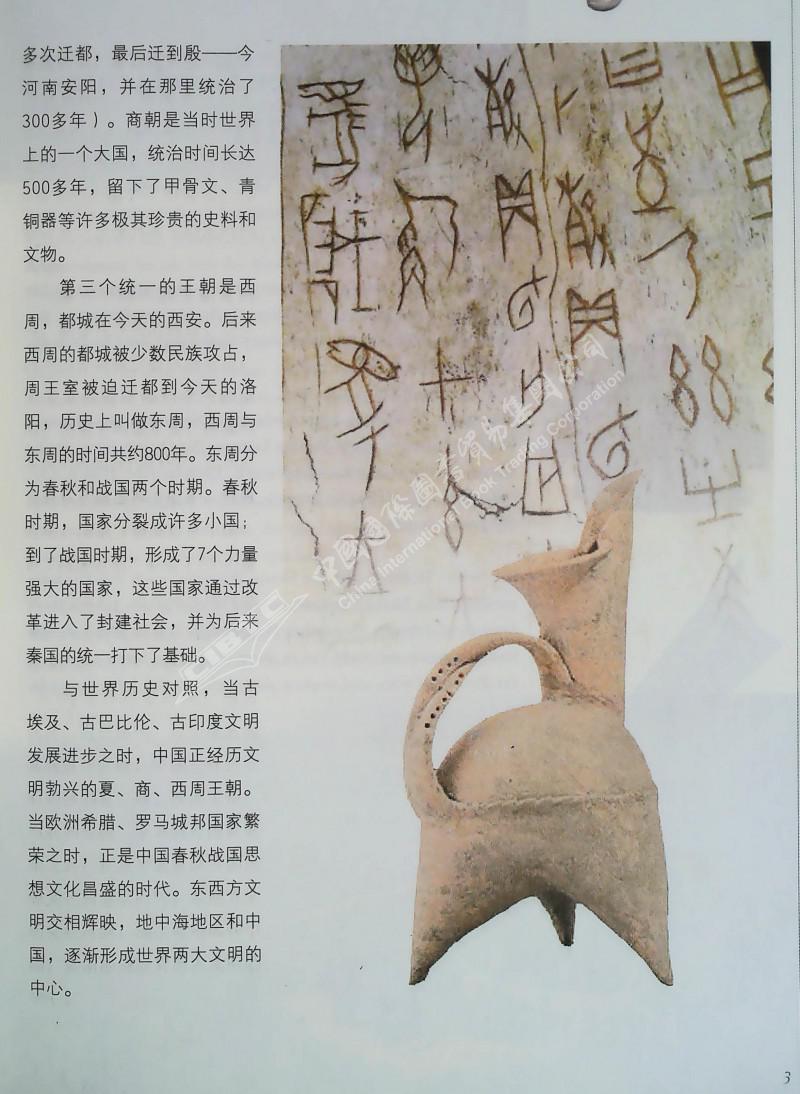 多次迁都，最后迁到殷——今
河南安阳，并在那里统治了
300多年）。商朝是当时世界
上的一个大国，统治时间长达
500多年，留下了甲骨文、青
铜器等许多极其珍贵的史料和
文物。
第三个统一的王朝是西
周，都城在今天的西安。后来
西周的都城被少数民族攻占，
周王室被迫迁都到今天的洛
阳，历史上叫做东周，西周与
东周的时间共约800年。东周分
为春秋和战国两个时期。春秋
时期，国家分裂成许多小国；
到了战国时期，形成了7个力量
强大的国家，这些国家通过改
革进入了封建社会，并为后来
秦国的统一打下了基础。
与世界历史对照，当古
埃及、古巴比伦、古印度文明
发展进步之时，中国正经历文
明勃兴的夏、商、西周王朝。
当欧洲希腊、罗马城邦国家繁
荣之时，正是中国春秋战国思
想文化昌盛的时代。东西方文
明交相辉映，地中海地区和中
国，逐渐形成世界两大文明的
中心。
中國國際圖書貿易集團公司
China International Book Trading Corporation
CIBTC
3